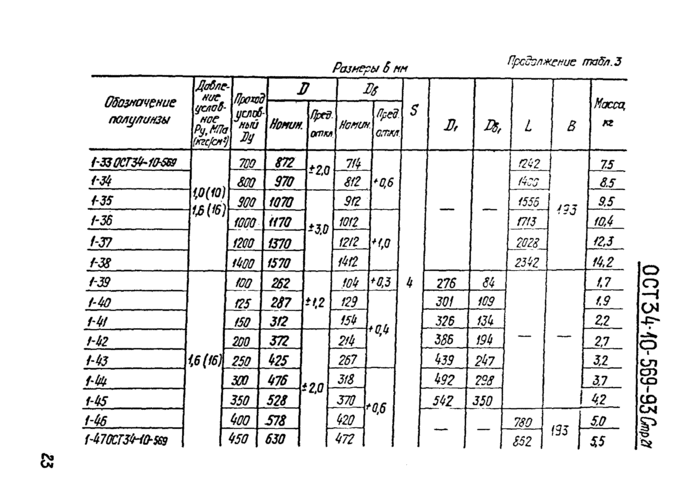 Размеры в мм
Продолжение табл. 3
Обозначение полулинзы | Давление условное Ру, МПа (кгс/см²) | Проход условный Dу | D Номин. | D Пред. откл | Dв Номин. | Dв Пред. откл | S | D₁ | Dв₁ | L | B | Масса, кг
1-33 ОСТ34-10-569 | 1,0 (10) 1,6 (16) | 700 | 872 | ±2,0 | 714 | +0,6 | 4 | — | — | 1242 | 193 | 7,5
1-34 | 800 | 970 | 812 | 8,5
1-35 | 900 | 1070 | ±3,0 | 912 | 1556 | 9,5
1-36 | 1000 | 1170 | 1012 | +1,0 | 1713 | 10,4
1-37 | 1200 | 1370 | 1212 | 2028 | 12,3
1-38 | 1400 | 1570 | 1412 | 2342 | 14,2
1-39 | 1,6 (16) | 100 | 262 | ±1,2 | 104 | +0,3 | 276 | 84 | — | — | 1,7
1-40 | 125 | 287 | 129 | +0,4 | 301 | 109 | 1,9
1-41 | 150 | 312 | 154 | 326 | 134 | 2,2
1-42 | 200 | 372 | ±2,0 | 214 | 386 | 194 | 2,7
1-43 | 250 | 425 | 267 | 439 | 247 | 3,2
1-44 | 300 | 476 | 318 | +0,6 | 492 | 298 | 3,7
1-45 | 350 | 528 | 370 | 542 | 350 | 4,2
1-46 | 400 | 578 | 420 | — | — | 780 | 193 | 5,0
1-47 ОСТ34-10-569 | 450 | 630 | 472 | 852 | 5,5
ОСТ 34-10-569-93 Стр. 21
23